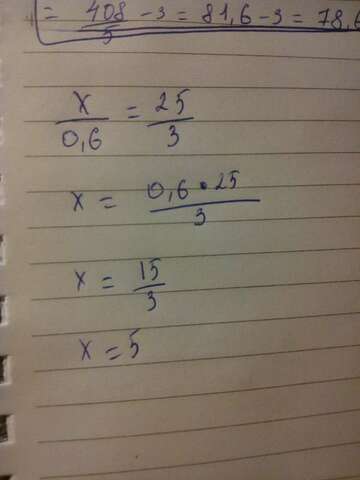 = 408/5 - 3 = 81,6 - 3 = 78,6
x/0,6 = 25/3
x = 0,6 • 25/3
x = 15/3
x = 5